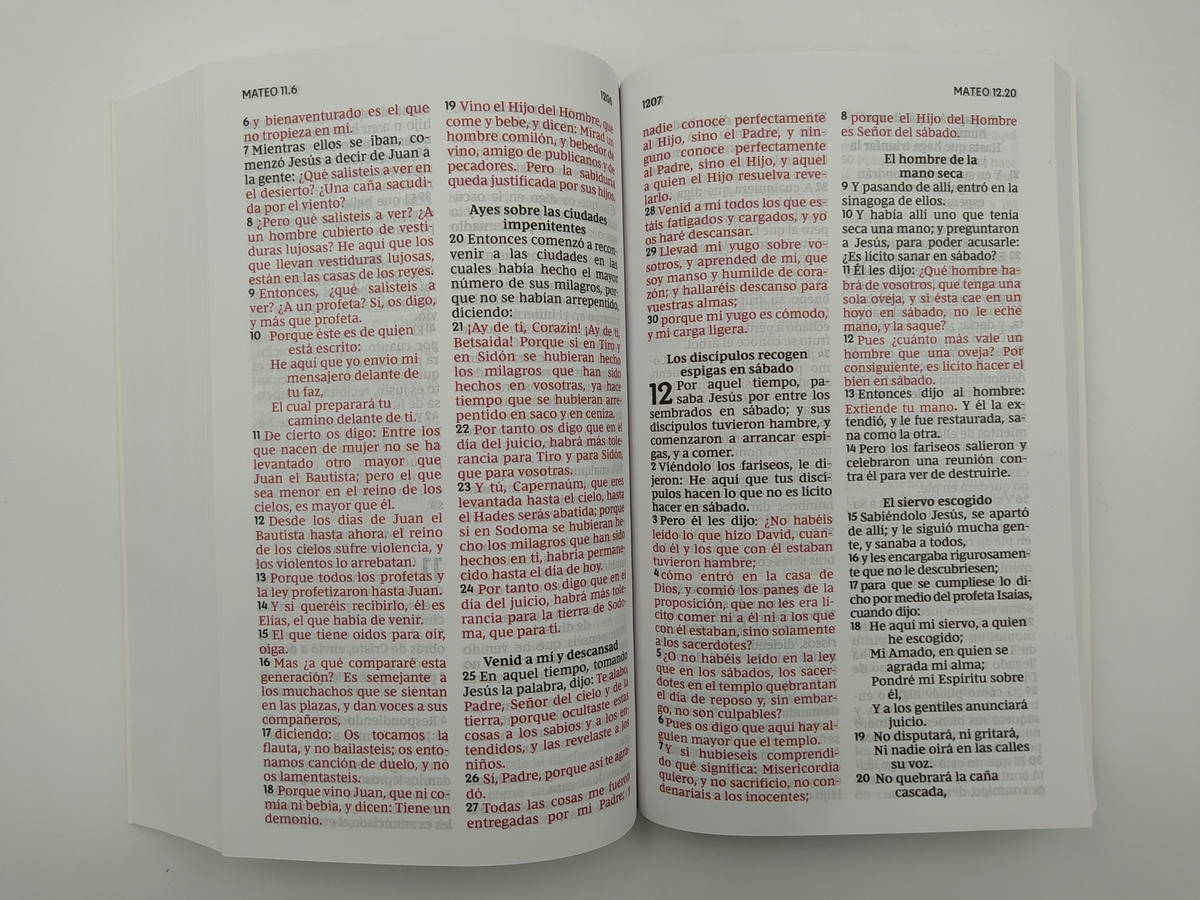 MATEO 11.6
1206
6 y bienaventurado es el que
no tropieza en mí.
7 Mientras ellos se iban, co-
menzó Jesús a decir de Juan a
la gente: ¿Qué salisteis a ver en
el desierto? ¿Una caña sacudi-
da por el viento?
8 ¿Pero qué salisteis a ver? ¿A
un hombre cubierto de vesti-
duras lujosas? He aquí que los
que llevan vestiduras lujosas,
están en las casas de los reyes.
9 Entonces, ¿qué salisteis a
ver? ¿A un profeta? Sí, os digo,
y más que profeta.
10 Porque éste es de quien
está escrito:
He aquí que yo envío mi
mensajero delante de
tu faz,
El cual preparará tu
camino delante de ti.
11 De cierto os digo: Entre los
que nacen de mujer no se ha
levantado otro mayor que
Juan el Bautista; pero el que
sea menor en el reino de los
cielos, es mayor que él.
12 Desde los días de Juan el
Bautista hasta ahora, el reino
de los cielos sufre violencia, y
los violentos lo arrebatan.
13 Porque todos los profetas y
la ley profetizaron hasta Juan.
14 Y si queréis recibirlo, él es
Elías, el que había de venir.
15 El que tiene oídos para oír,
oiga.
16 Mas ¿a qué compararé esta
generación? Es semejante a
los muchachos que se sientan
en las plazas, y dan voces a sus
compañeros,
17 diciendo: Os tocamos la
flauta, y no bailasteis; os ento-
namos canción de duelo, y no
os lamentasteis.
18 Porque vino Juan, que ni co-
mía ni bebía, y dicen: Tiene un
demonio.
19 Vino el Hijo del Hombre, que
come y bebe, y dicen: Mirad un
hombre comilón, y bebedor de
vino, amigo de publicanos y de
pecadores. Pero la sabiduría
queda justificada por sus hijos.
Ayes sobre las ciudades
impenitentes
20 Entonces comenzó a recon-
venir a las ciudades en las
cuales había hecho el mayor
número de sus milagros, por-
que no se habían arrepentido,
diciendo:
21 ¡Ay de ti, Corazín! ¡Ay de ti,
Betsaida! Porque si en Tiro y
en Sidón se hubieran hecho
los milagros que han sido
hechos en vosotras, ya hace
tiempo que se hubieran arre-
pentido en saco y en ceniza.
22 Por tanto os digo que en el
día del juicio, habrá más tole-
rancia para Tiro y para Sidón,
que para vosotras.
23 Y tú, Capernaúm, que eres
levantada hasta el cielo, hasta
el Hades serás abatida; porque
si en Sodoma se hubieran he-
cho los milagros que han sido
hechos en ti, habría permane-
cido hasta el día de hoy.
24 Por tanto os digo que en el
día del juicio, habrá más tole-
rancia para la tierra de Sodo-
ma, que para ti.
Venid a mí y descansad
25 En aquel tiempo, tomando
Jesús la palabra, dijo: Te alabo,
Padre, Señor del cielo y de la
tierra, porque ocultaste estas
cosas a los sabios y a los en-
tendidos, y las revelaste a los
niños.
26 Sí, Padre, porque así te agra-
dó.
27 Todas las cosas me fueron
entregadas por mi Padre; y
1207
MATEO 12.20
nadie conoce perfectamente
al Hijo, sino el Padre, y nin-
guno conoce perfectamente
al Padre, sino el Hijo, y aquel
a quien el Hijo resuelva reve-
larlo.
28 Venid a mí todos los que es-
táis fatigados y cargados, y yo
os haré descansar.
29 Llevad mi yugo sobre vo-
sotros, y aprended de mí, que
soy manso y humilde de cora-
zón; y hallaréis descanso para
vuestras almas;
30 porque mi yugo es cómodo,
y mi carga ligera.
Los discípulos recogen
espigas en sábado
12 Por aquel tiempo, pa-
saba Jesús por entre los
sembrados en sábado; y sus
discípulos tuvieron hambre, y
comenzaron a arrancar espi-
gas, y a comer.
2 Viéndolo los fariseos, le di-
jeron: He aquí que tus discí-
pulos hacen lo que no es lícito
hacer en sábado.
3 Pero él les dijo: ¿No habéis
leído lo que hizo David, cuan-
do él y los que con él estaban
tuvieron hambre;
4 cómo entró en la casa de
Dios, y comió los panes de la
proposición, que no les era lí-
cito comer ni a él ni a los que
con él estaban, sino solamente
a los sacerdotes?
5 ¿O no habéis leído en la ley
que en los sábados, los sacer-
dotes en el templo quebrantan
el día de reposo y, sin embar-
go, no son culpables?
6 Pues os digo que aquí hay al-
guien mayor que el templo.
7 Y si hubieseis comprendi-
do qué significa: Misericordia
quiero, y no sacrificio, no con-
denaríais a los inocentes;
8 porque el Hijo del Hombre
es Señor del sábado.
El hombre de la
mano seca
9 Y pasando de allí, entró en la
sinagoga de ellos.
10 Y había allí uno que tenía
seca una mano; y preguntaron
a Jesús, para poder acusarle:
¿Es lícito sanar en sábado?
11 Él les dijo: ¿Qué hombre ha-
brá de vosotros, que tenga una
sola oveja, y si ésta cae en un
hoyo en sábado, no le eche
mano, y la saque?
12 Pues ¿cuánto más vale un
hombre que una oveja? Por
consiguiente, es lícito hacer el
bien en sábado.
13 Entonces dijo al hombre:
Extiende tu mano. Y él la ex-
tendió, y le fue restaurada, sa-
na como la otra.
14 Pero los fariseos salieron y
celebraron una reunión con-
tra él para ver de destruirle.
El siervo escogido
15 Sabiéndolo Jesús, se apartó
de allí; y le siguió mucha gen-
te, y sanaba a todos,
16 y les encargaba rigurosamen-
te que no le descubriesen;
17 para que se cumpliese lo di-
cho por medio del profeta Isaías,
cuando dijo:
18 He aquí mi siervo, a quien
he escogido;
Mi Amado, en quien se
agrada mi alma;
Pondré mi Espíritu sobre
él,
Y a los gentiles anunciará
juicio.
19 No disputará, ni gritará,
Ni nadie oirá en las calles
su voz.
20 No quebrará la caña
cascada,